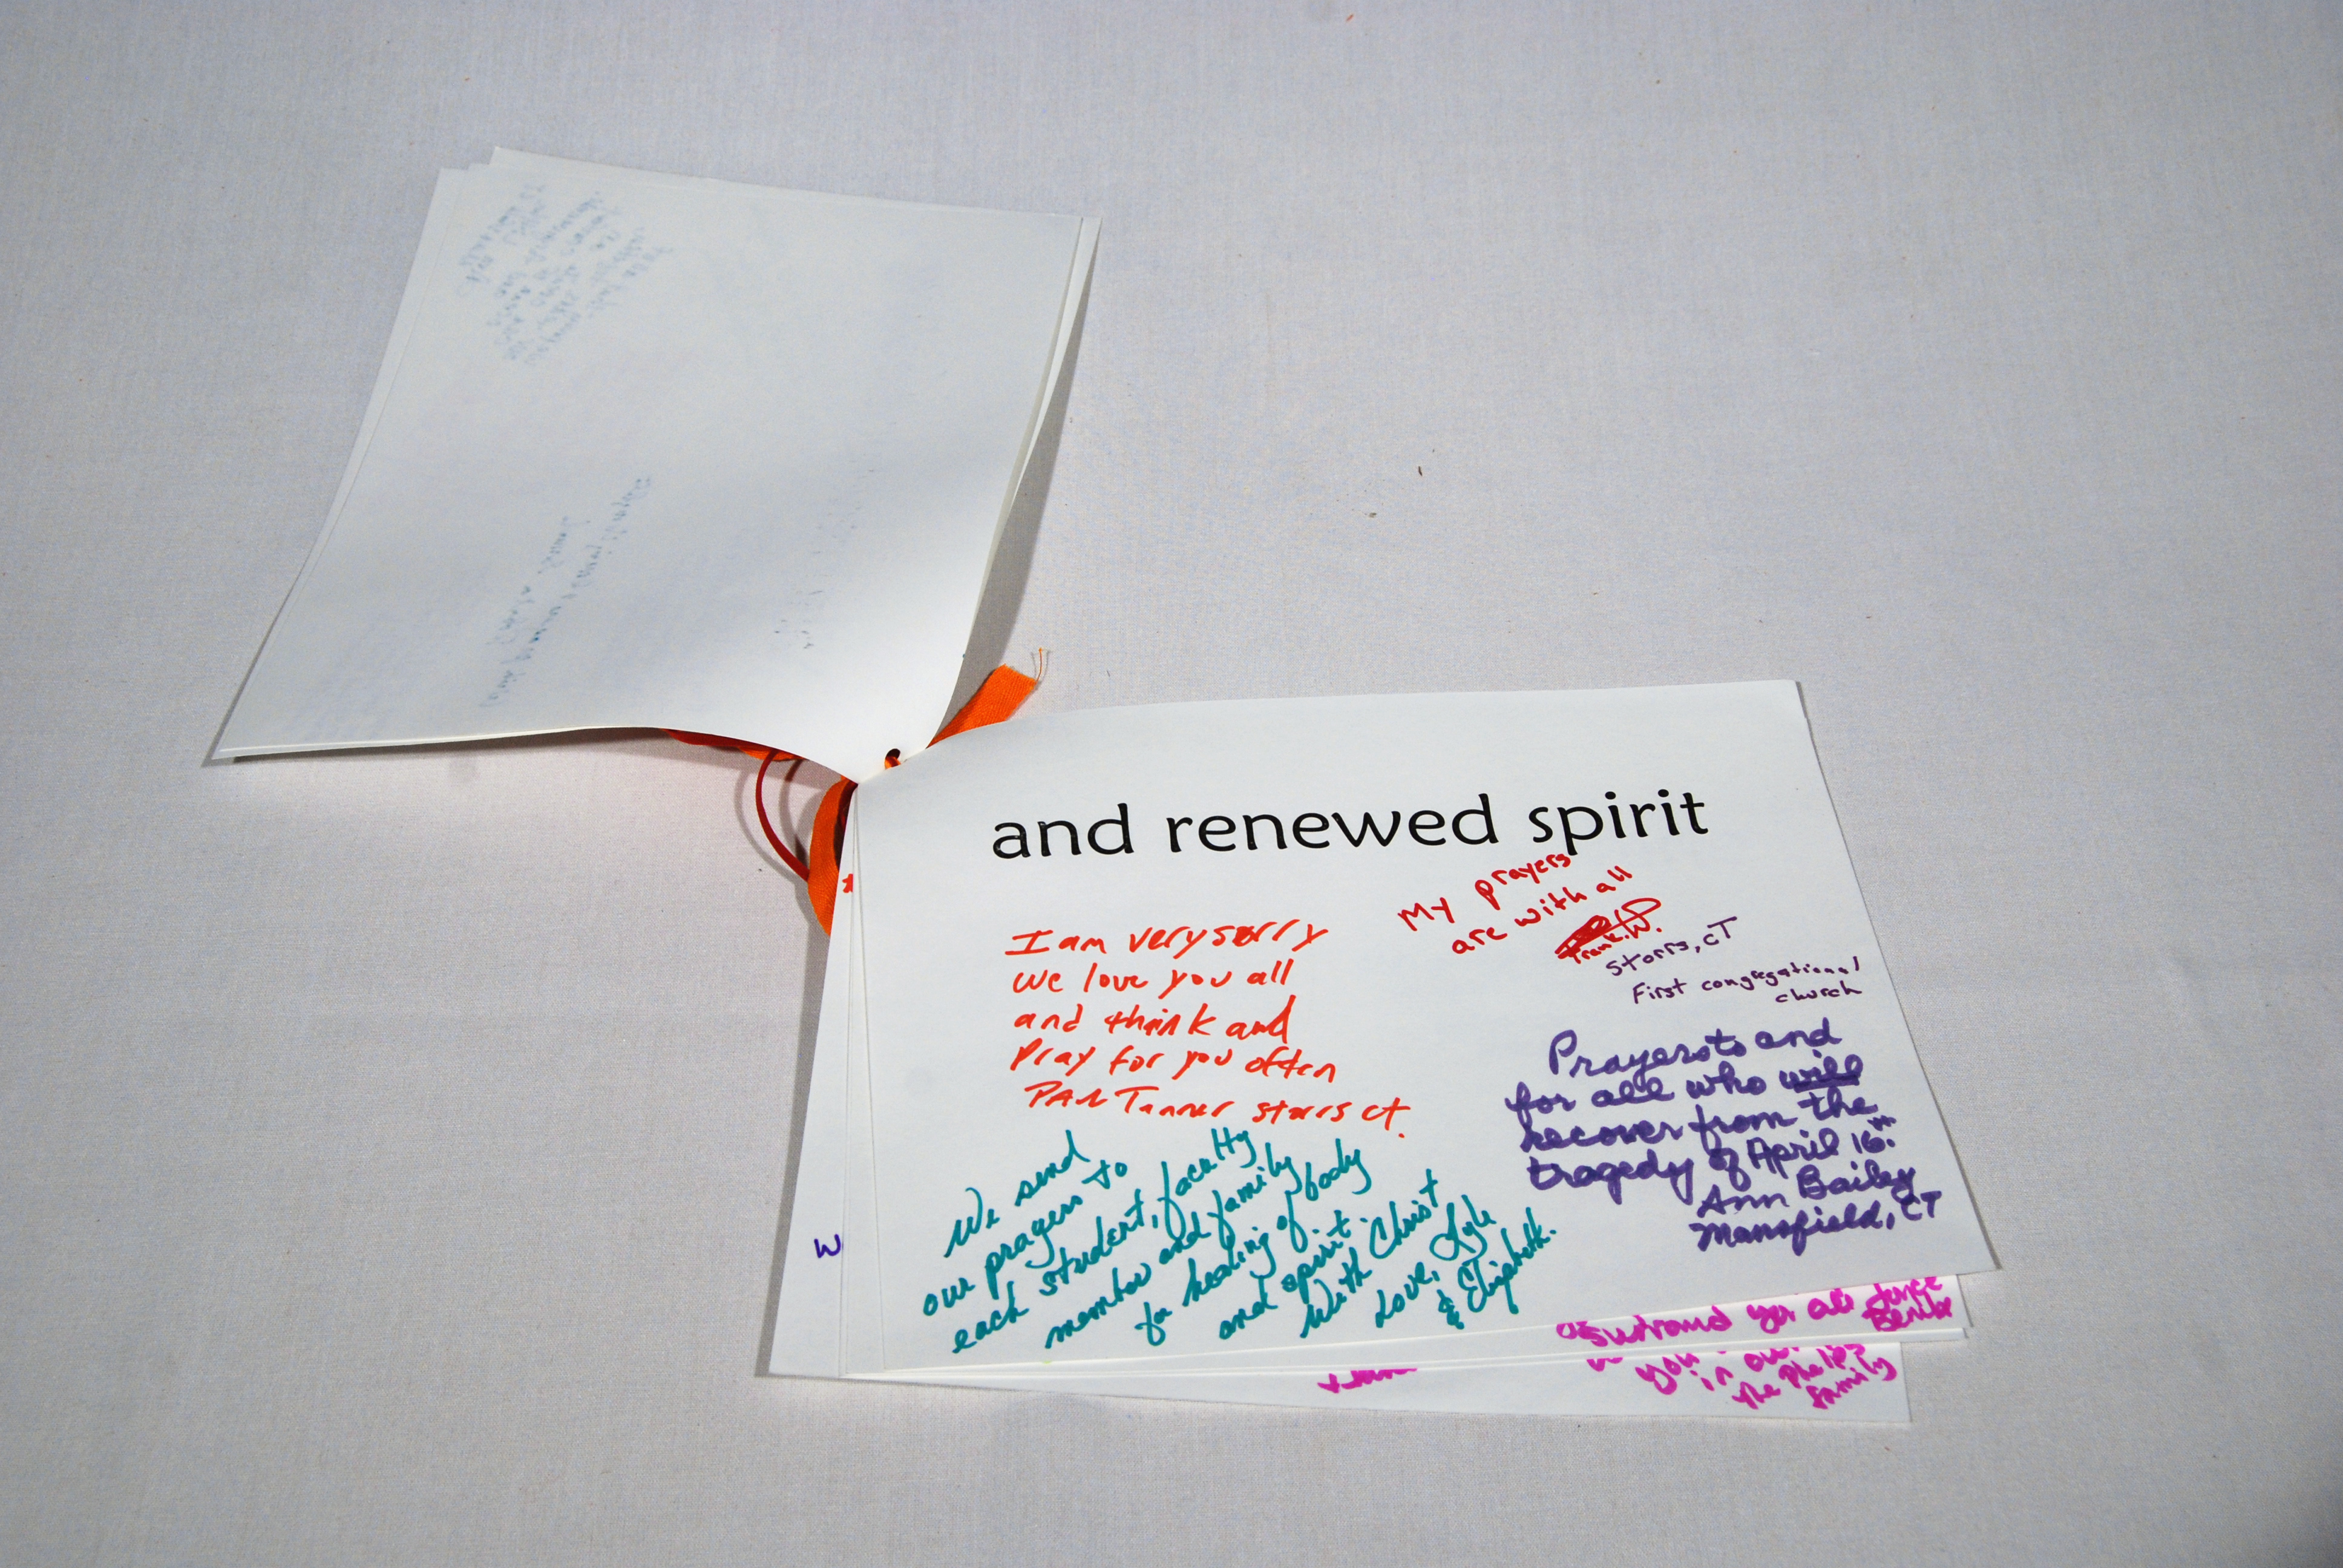 and renewed spirit
My prayers
are with all
Frank.W.
Storrs, CT
First congregational
church
I am very sorry
we love you all
and think and
Pray for you often
Tanner storrs ct.
Prayers to and
for all who will
recover from the
tragedy of April 16th.
Ann Bailey
Mansfield, CT
We send
our prayers to
each student, faculty
member and family
for healing of body
and spirit.
With Christ
Love, Lyle
& Elizabeth.
W
surround you all
you
in our
the Phelps
family